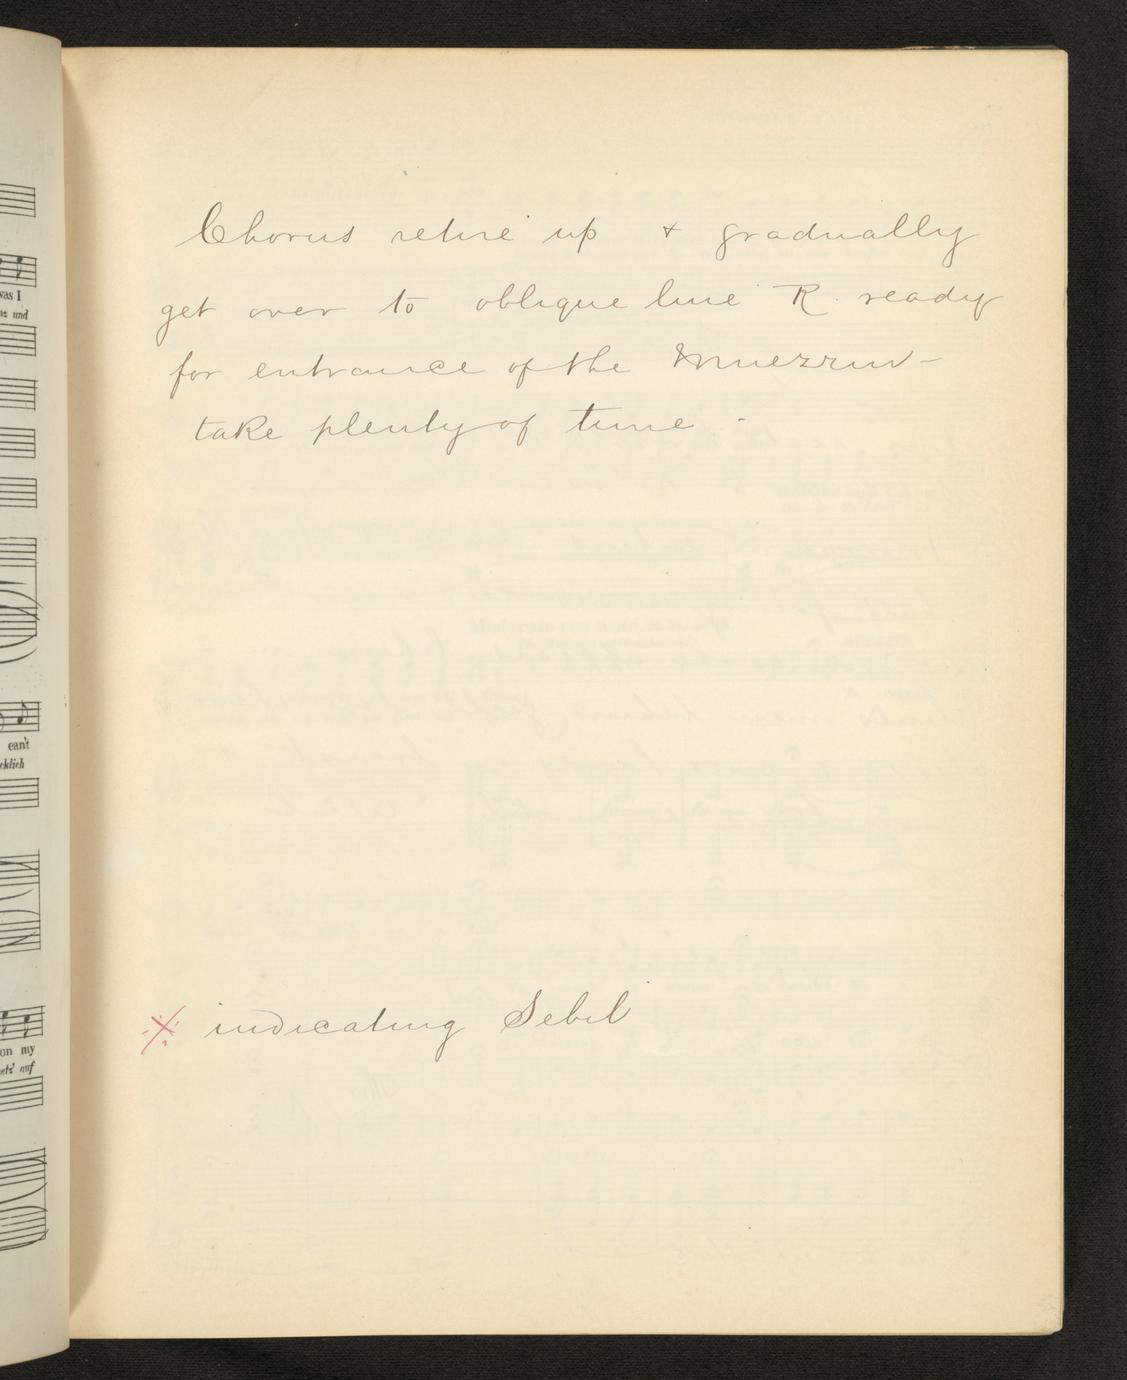 was I
nz und
can't
cklich
on my
etz' auf
Chorus retire up & gradually
get over to oblique line R. ready
for entrance of the Muezzin –
take plenty of time -
※ indicating Sebil